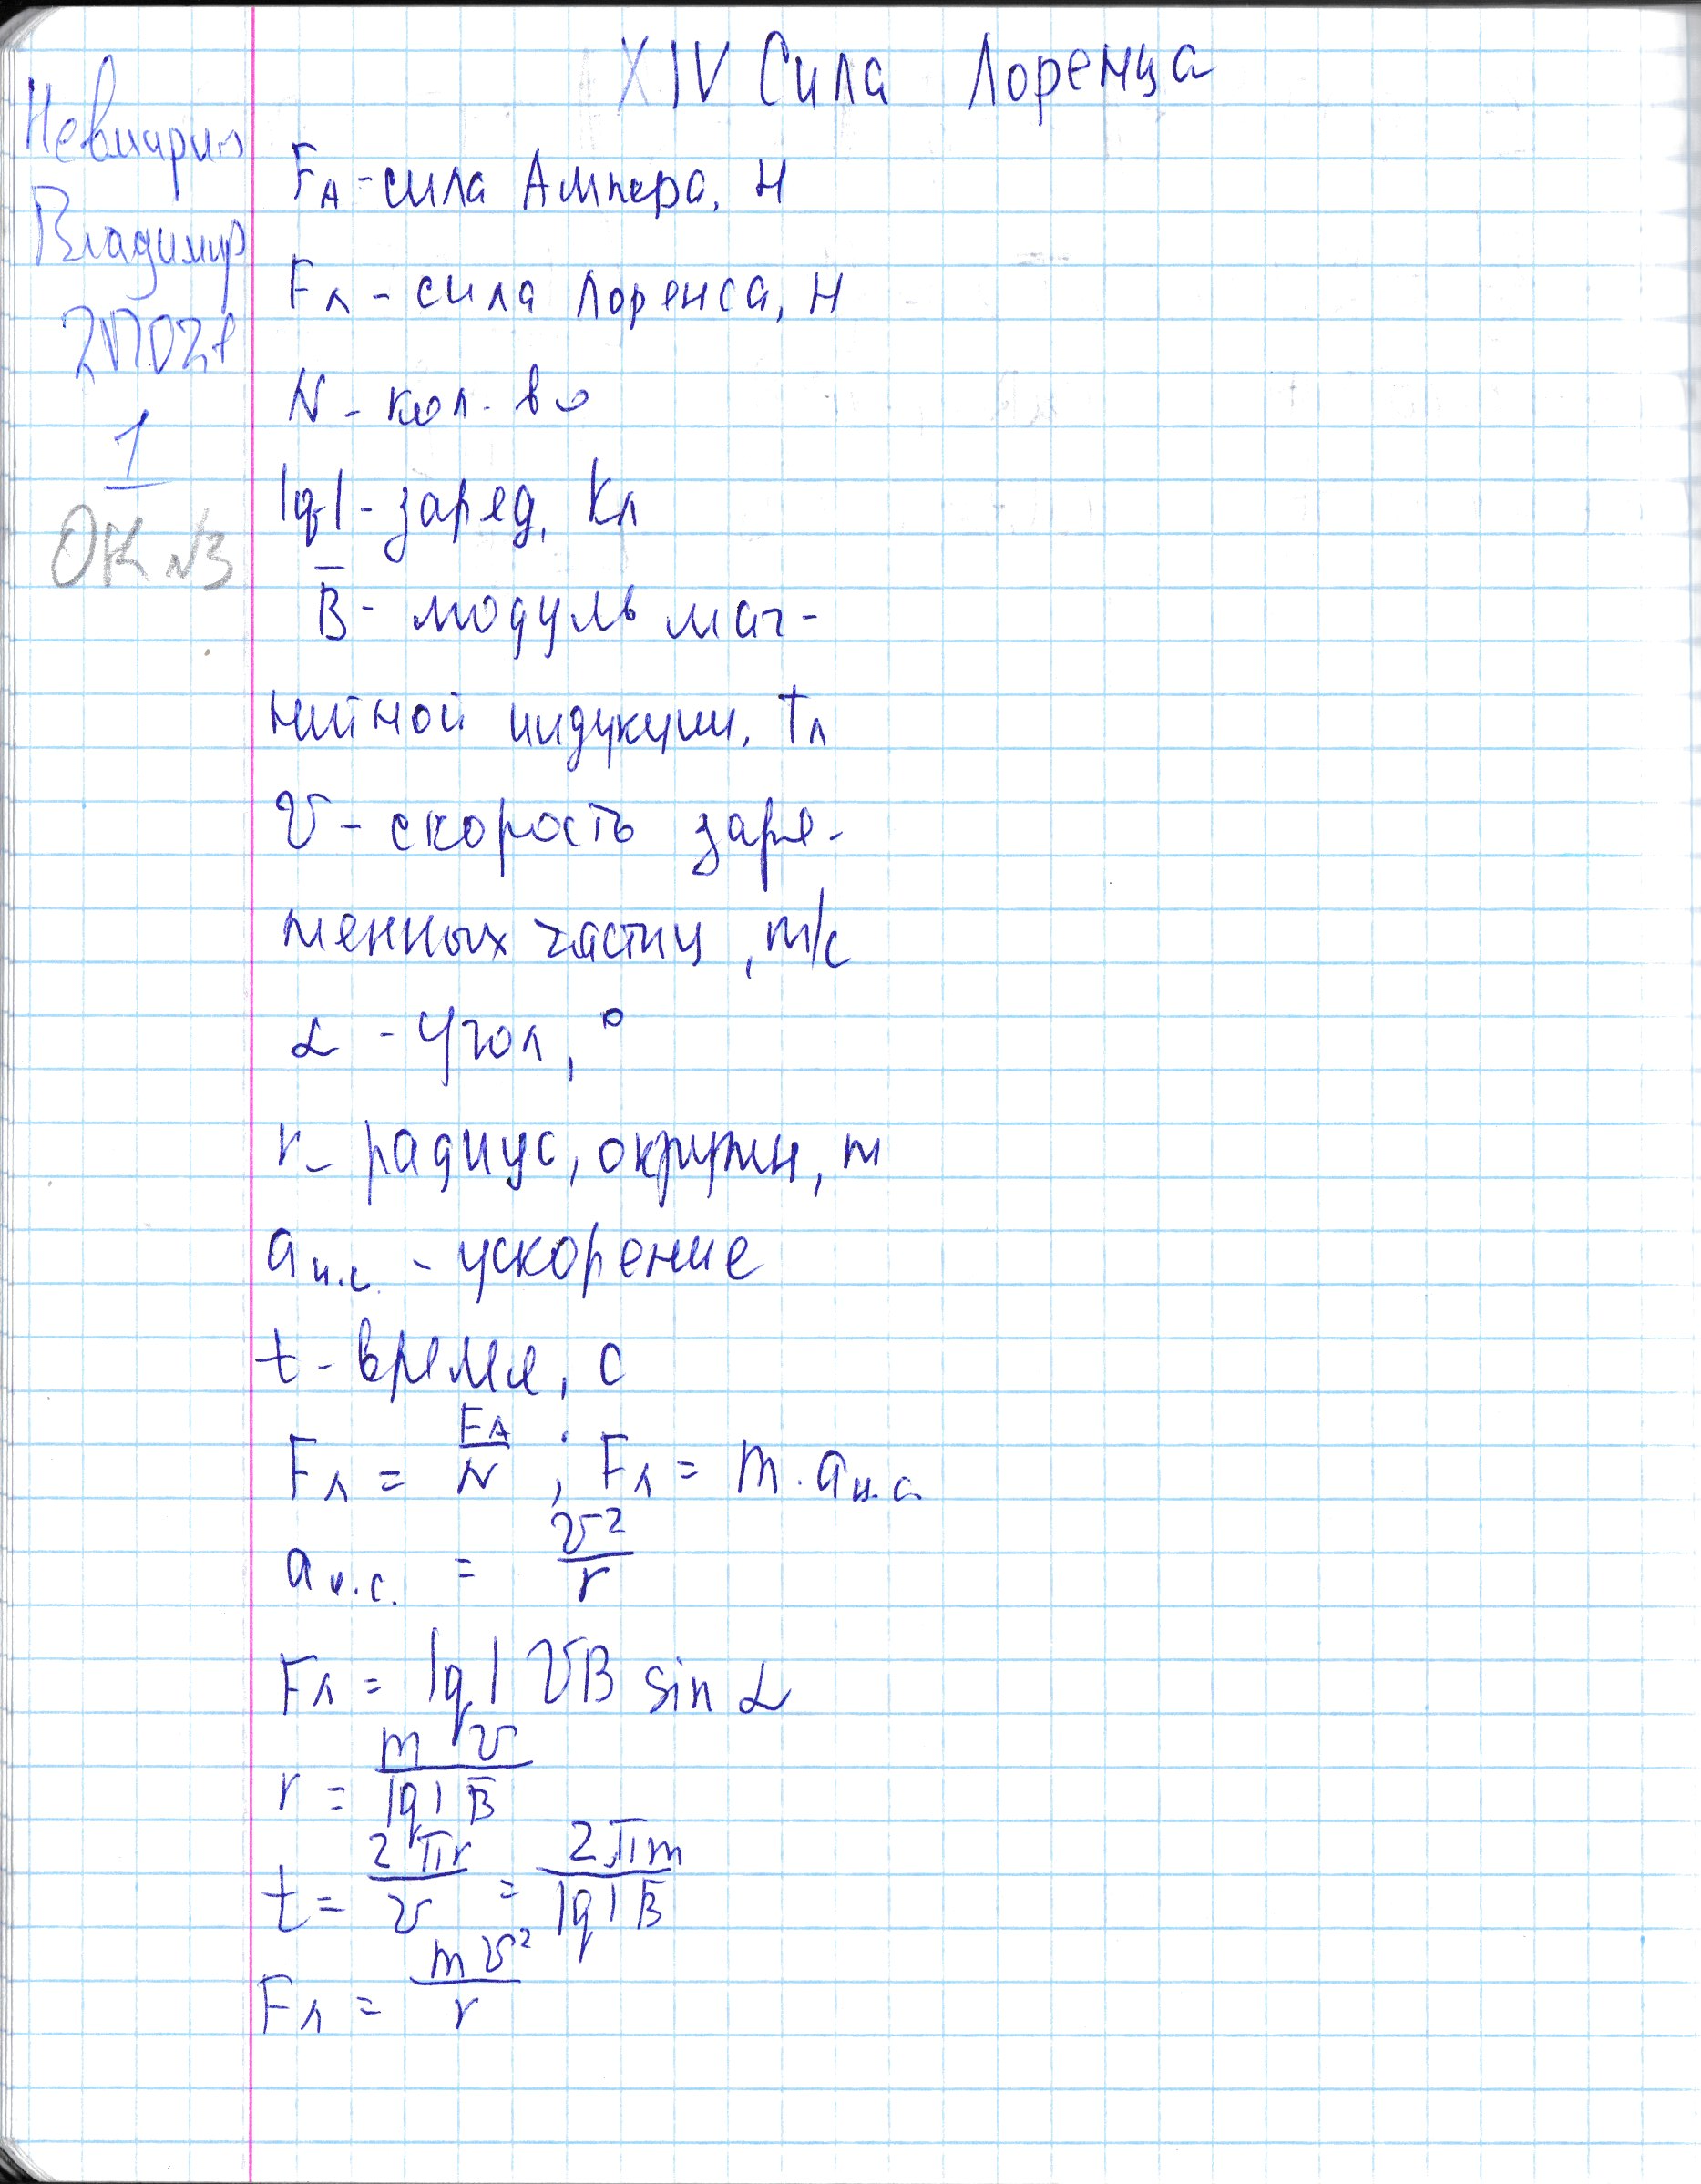 XIV Сила Лоренца
Владимир
1
ОК №3
FА - сила Ампера, Н
Fл - сила Лоренса, Н
N - кол-во
|q| - заряд, Кл
B̅ - модуль маг-
нитной индукции, Тл
v - скорость заря-
женных частиц, м/с
α - угол, °
r - радиус, окружн, м
aц.с. - ускорение
t - время, с
Fл = FА/N ; Fл = m · aц.с.
aц.с. = v²/r
Fл = |q| vB sin α
r = m v/|q| B
t = 2πr/v = 2πm/|q| B
Fл = m v²/r